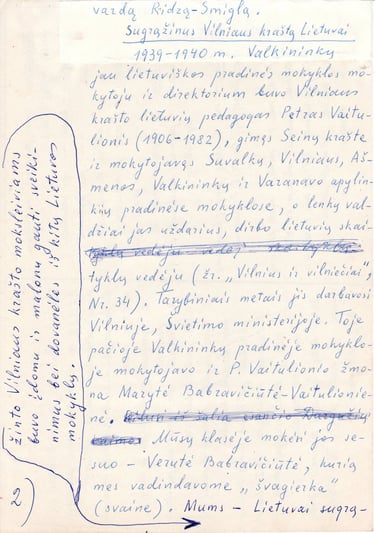 vardą Ridzą-Smiglą.
Sugrąžinus Vilniaus kraštą Lietuvai
1939-1940 m. Valkininkų
jau lietuviškos pradinės mokyklos mo-
kytoju ir direktorium buvo Vilniaus
krašto lietuvių pedagogas Petras Vaitu-
lionis (1906-1982), gimęs Seinų krašte
ir mokytojavęs Suvalkų, Vilniaus, Aš-
menos, Valkininkų ir Varanavo apylin-
kių pradinėse mokyklose, o lenkų val-
džiai jas uždarius, dirbo lietuvių skai-
tyklų vedėju (žr. „Vilnius ir vilniečiai",
Nr. 34). Tarybiniais metais jis darbavosi
Vilniuje, Švietimo ministerijoje. Toje
pačioje Valkininkų pradinėje mokyklo-
je mokytojavo ir P. Vaitulionio žmo-
na Marytė Babravičiūtė-Vaitulionie-
nė.
Mūsų klasėje mokėsi jos se-
suo - Verutė Babravičiūtė, kurią
mes vadindavome „švagierka"
(svaine). Mums - Lietuvai sugrą-
žinto Vilniaus krašto moksleiviams
buvo įdomu ir malonu gauti sveiki-
nimus bei dovanėles iš kitų Lietuvos
mokyklų.
29)